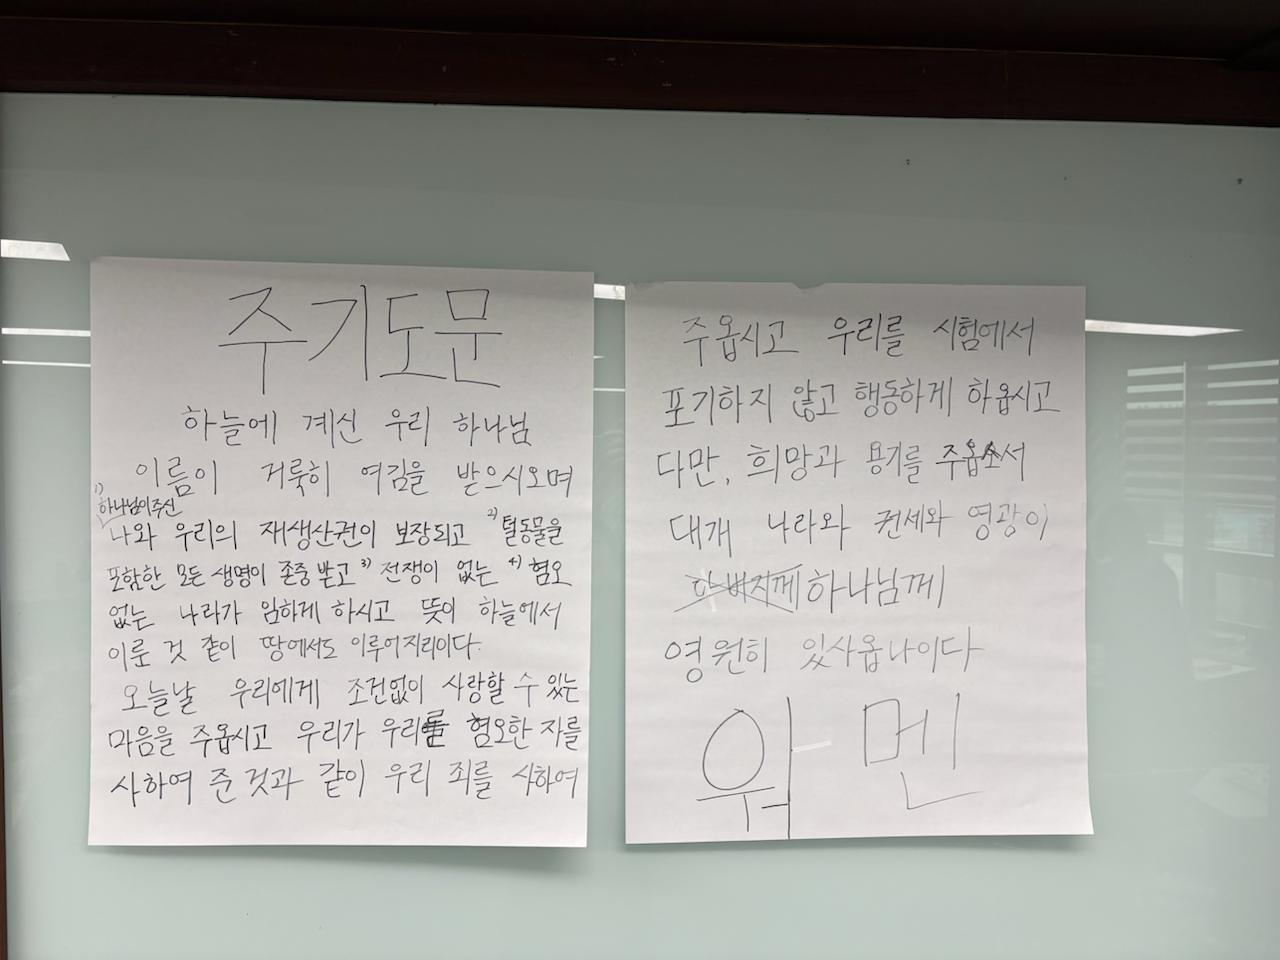 주기도문
하늘에 계신 우리 하나님
이름이 거룩히 여김을 받으시오며
1) 하나님이주신
나와 우리의 재생산권이 보장되고 2) 털동물을
포함한 모든 생명이 존중 받고 3) 전쟁이 없는 4) 혐오
없는 나라가 임하게 하시고 뜻이 하늘에서
이룬 것 같이 땅에서도 이루어지리이다.
오늘날 우리에게 조건없이 사랑할 수 있는
마음을 주옵시고 우리가 우리를 혐오한 자를
사하여 준 것과 같이 우리 죄를 사하여
주옵시고 우리를 시험에서
포기하지 않고 행동하게 하옵시고
다만, 희망과 용기를 주옵소서
대개 나라와 권세와 영광이
아버지께 하나님께
영원히 있사옵나이다
워멘